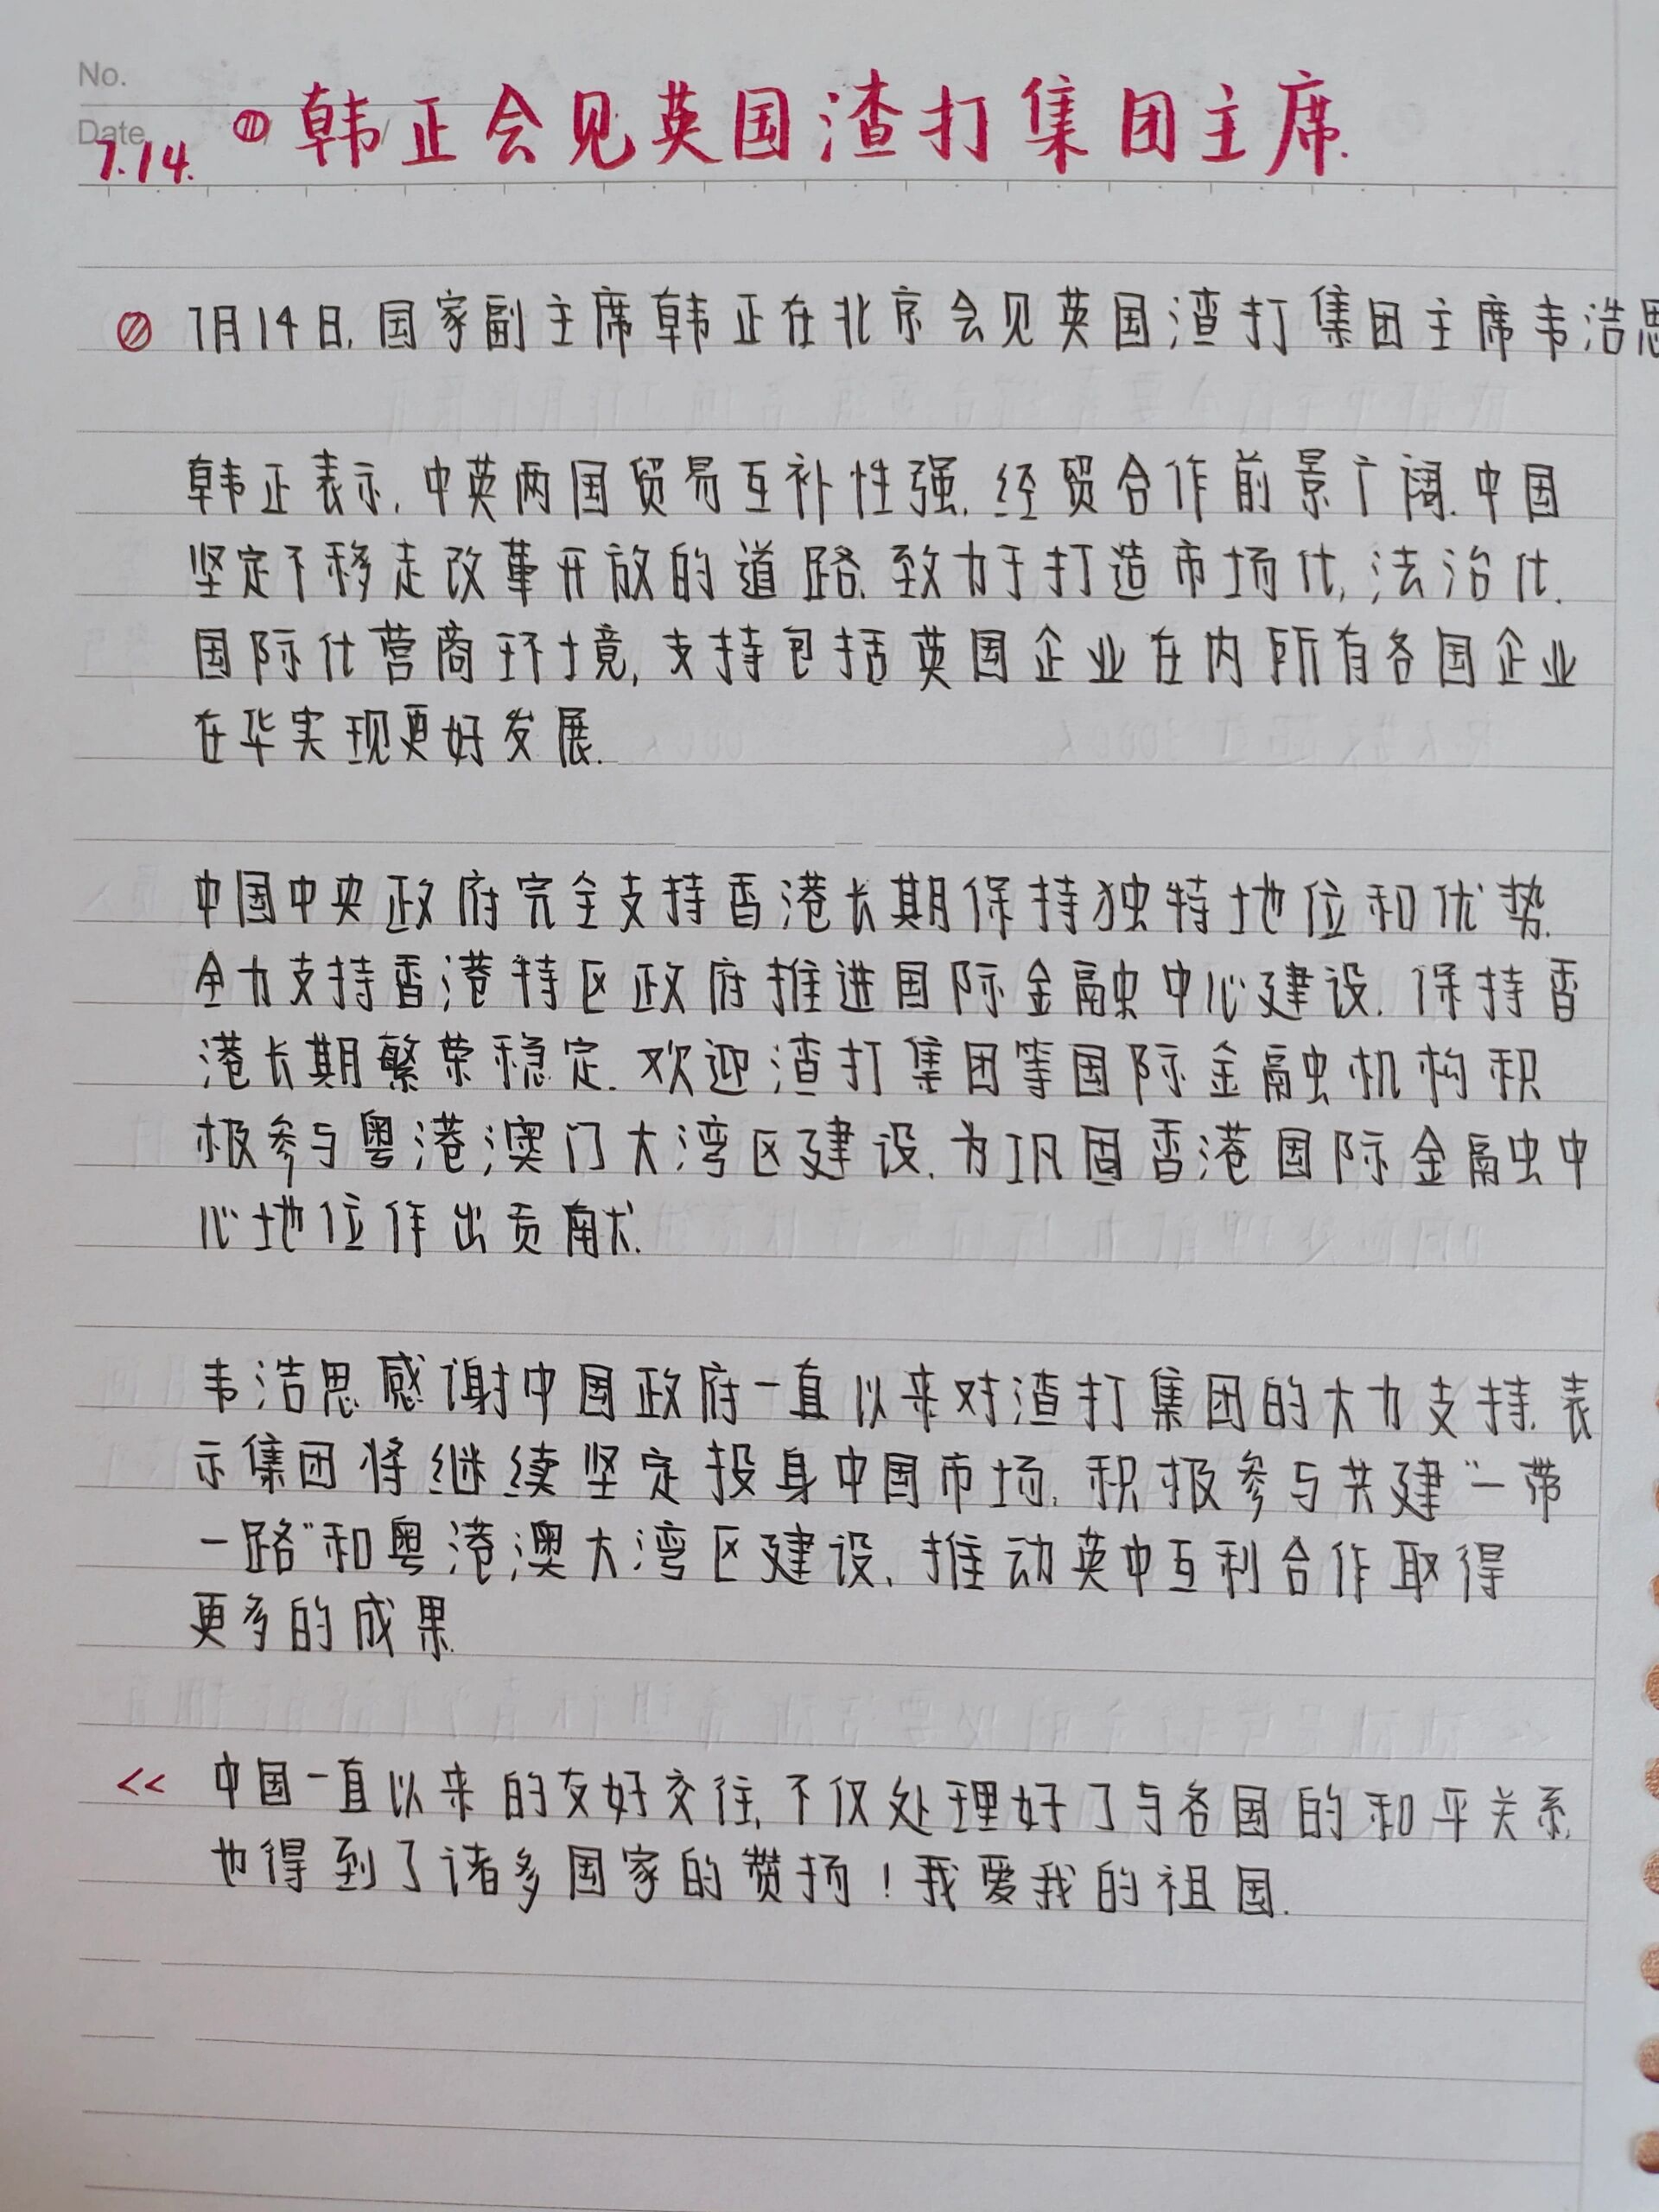 No.
Date
7.14. 韩正会见英国渣打集团主席.
7月14日,国家副主席韩正在北京会见英国渣打集团主席韦浩思
韩正表示,中英两国贸易互补性强,经贸合作前景广阔.中国
坚定不移走改革开放的道路,致力于打造市场化,法治化.
国际化营商环境,支持包括英国企业在内所有各国企业
在华实现更好发展.
中国中央政府完全支持香港长期保持独特地位和优势.
全力支持香港特区政府推进国际金融中心建设.保持香
港长期繁荣稳定.欢迎渣打集团等国际金融机构积
极参与粤港澳门大湾区建设.为巩固香港国际金融中
心地位作出贡献.
韦浩思感谢中国政府一直以来对渣打集团的大力支持.表
示集团将继续坚定投身中国市场.积极参与共建“一带
一路”和粤港澳大湾区建设.推动英中互利合作取得
更多的成果.
<< 中国一直以来的友好交往,不仅处理好了与各国的和平关系.
也得到了诸多国家的赞扬!我爱我的祖国.